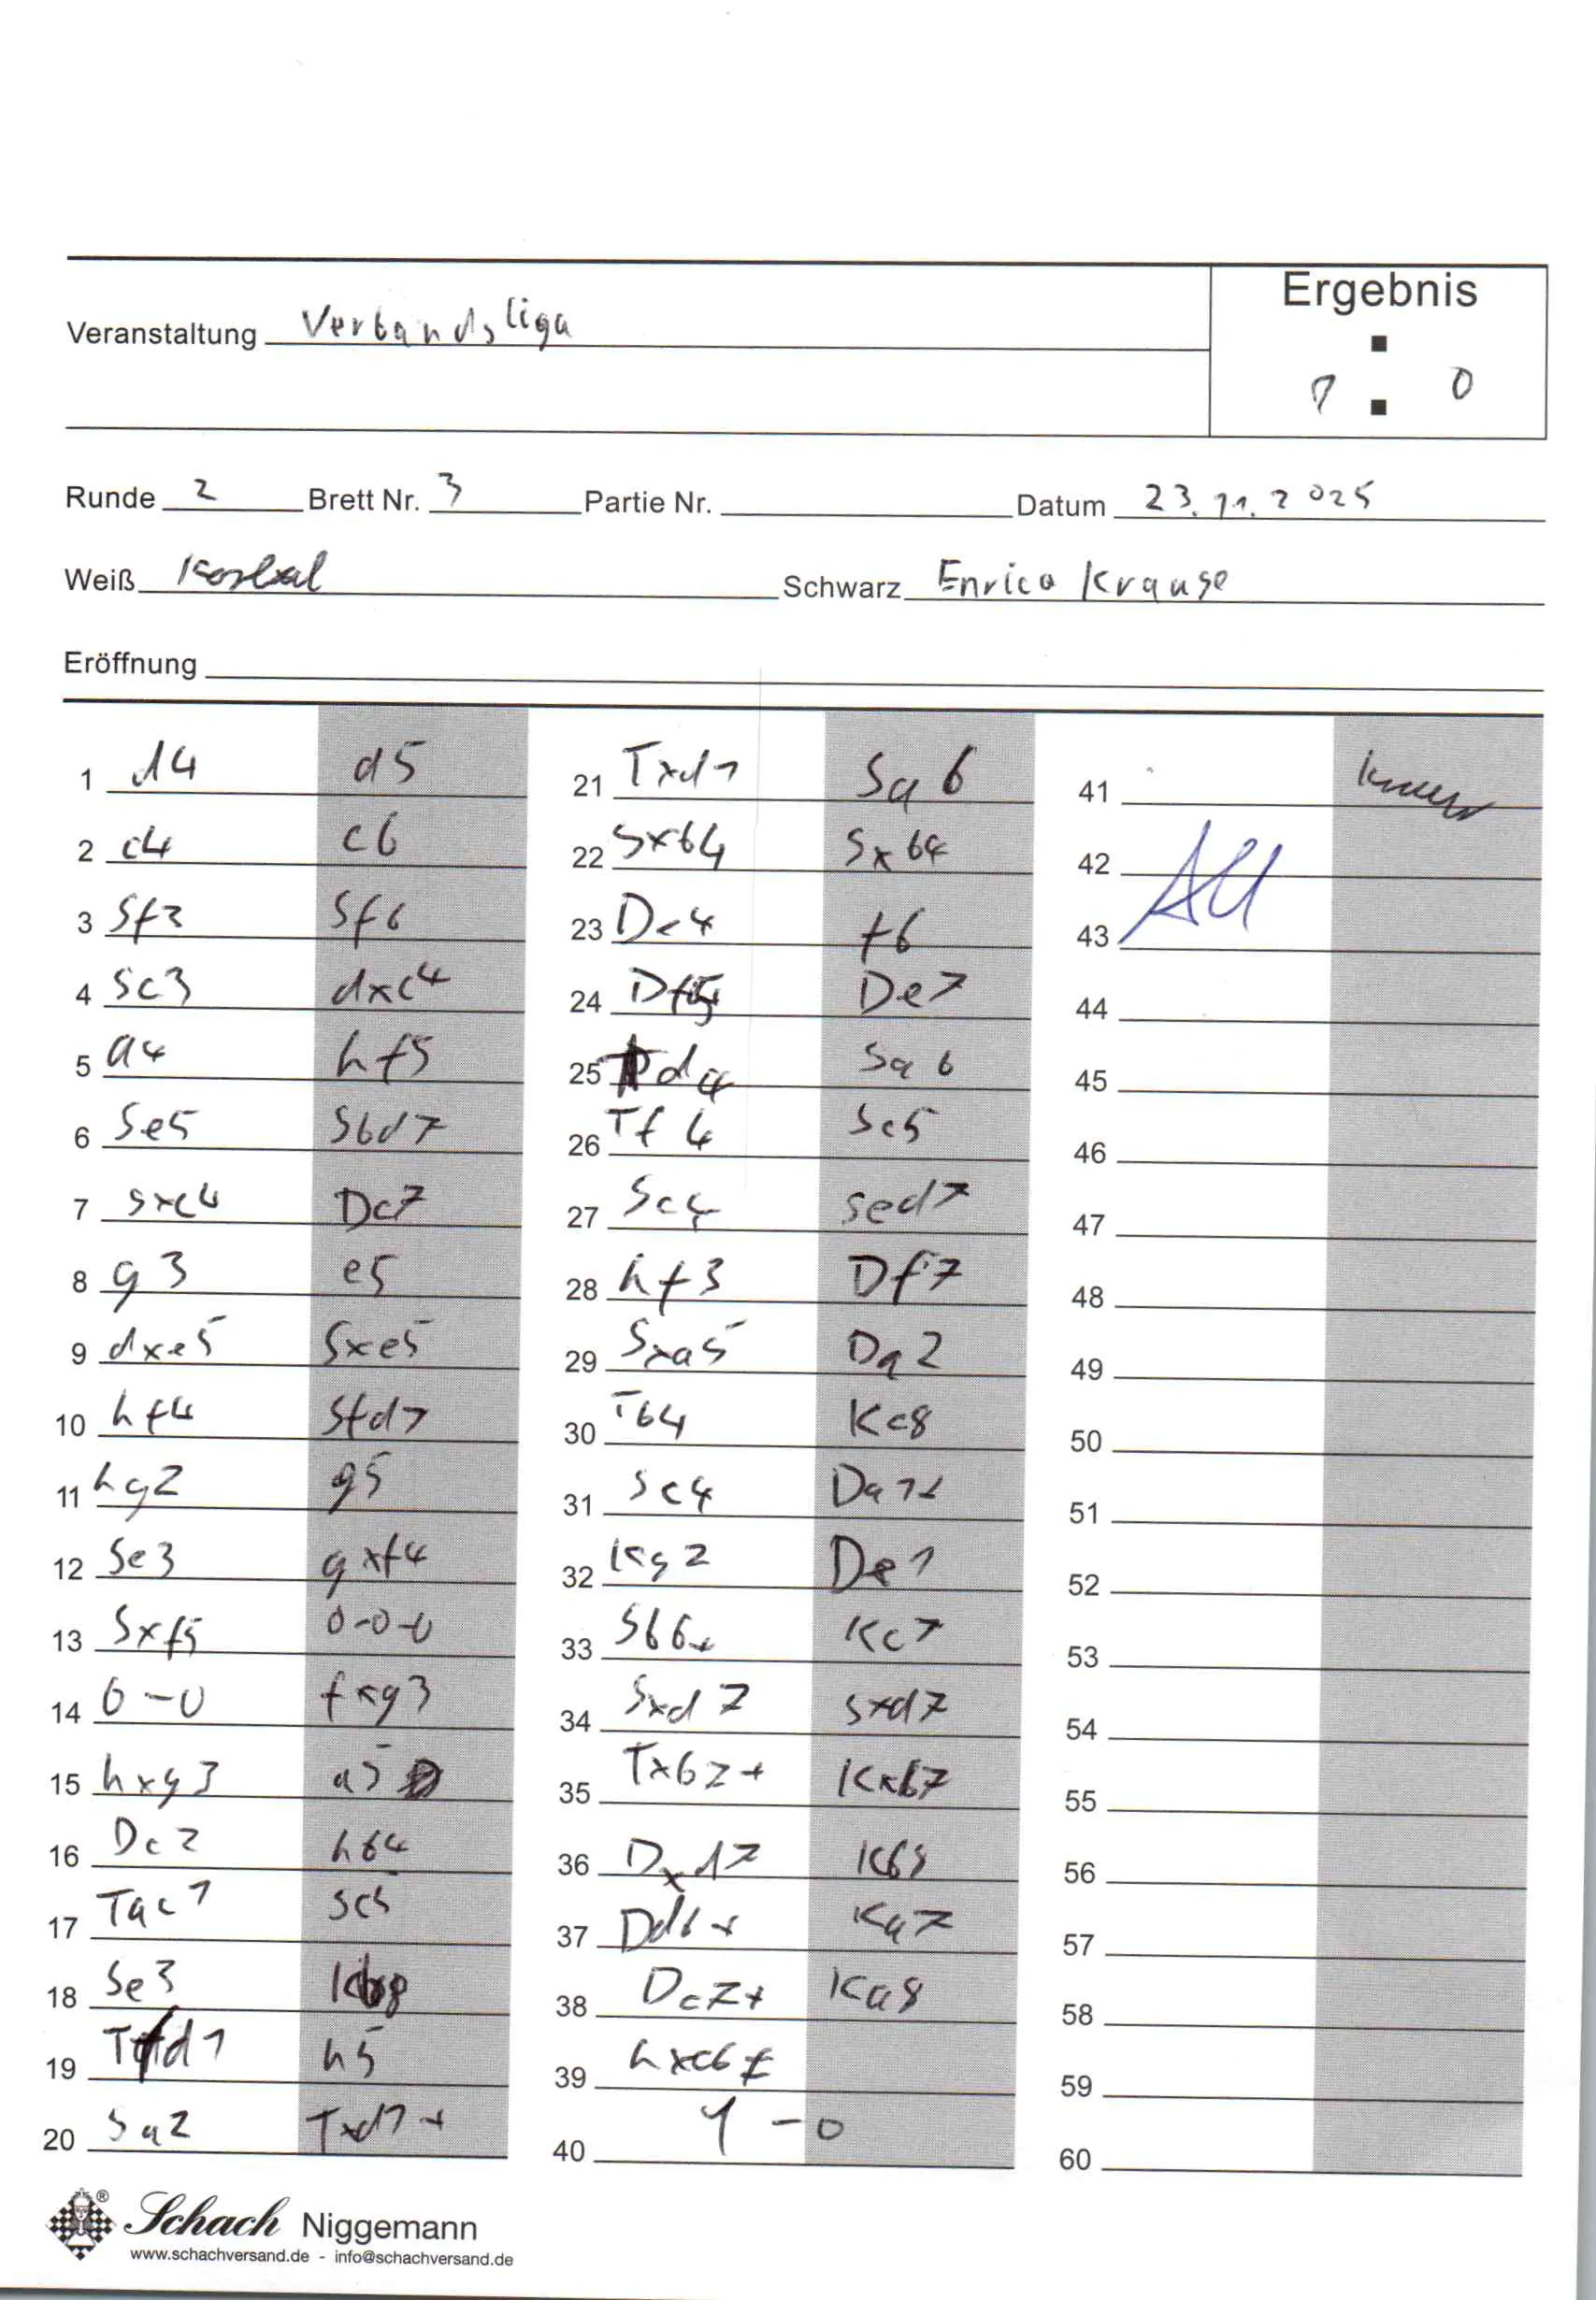 Ergebnis
Veranstaltung Verbandsliga
1 : 0
Runde 2 Brett Nr. 3 Partie Nr. Datum 23.11.2025
Weiß Schwarz Enrico Krause
Eröffnung
1 d4 d5
2 c4 c6
3 Sf3 Sf6
4 Sc3 dxc4
5 a4 hf5
6 Se5 Sbd7
7 Sxc4 Dc7
8 g3 e5
9 dxe5 Sxe5
10 hf4 Sfd7
11 hg2 g5
12 Se3 gxf4
13 Sxf5 0-0-0
14 0-0 fxg3
15 hxg3 a5
16 Dc2 hb4
17 Tac1 Sc5
18 Se3 Kb8
19 Tfd1 h5
20 Sa2 Txd1+
21 Txd1 Sa6
22 Sxb4 Sxb4
23 De4 f6
24 Df5 De7
25 Td4 Sa6
26 Tf4 Sc5
27 Sc4 Sed7
28 hf3 Df7
29 Sxa5 Da2
30 Tb4 Kc8
31 Sc4 Da1+
32 Kg2 De1
33 Sb6+ Kc7
34 Sxd7 Sxd7
35 Txb7+ Kxb7
36 Dxd7 Kb8
37 Dd6+ Ka7
38 Dc7+ Ka8
39 hxc6#
40 1-0
41
42
43
44
45
46
47
48
49
50
51
52
53
54
55
56
57
58
59
60
Schach Niggemann
www.schachversand.de - info@schachversand.de